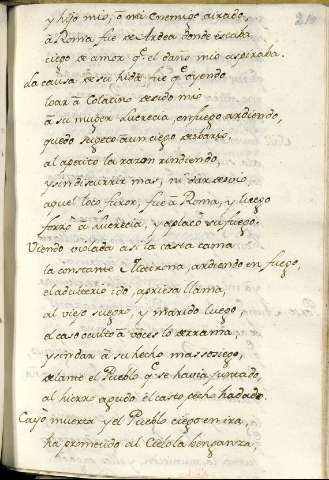 210
y hijo mio, ò mi enemigo airado,
à Roma fue de Ardea donde estaba
ciego de amor q̃ el daño mio aspiraba.
La causa de su hida fue q̃ oyendo
loar à Colatino deudo mio
à su muger Lucrecia, en fuego ardiendo,
quedo sugeto à un ciego desbario,
al apetito la razon rindiendo,
y sin discurrir mas, ni dar desvio,
aquel loco furor, fue à Roma, y luego
forzò à Lucrecia, y aplacò su fuego.
Viendo violada asi la casta cama
la constante Matrona, ardiendo en fuego,
el adulterio ido, apriesa llama,
al viejo suegro, y marido luego,
el caso oculto à voces lo derrama,
y sin dar à su hecho mas sosiego,
delante el Pueblo q̃ se havia juntado,
al hierro agudo el casto pecho ha dado.
Cayò muerta y el Pueblo ciego en ira,
ha prometido al Cielo la benganza,